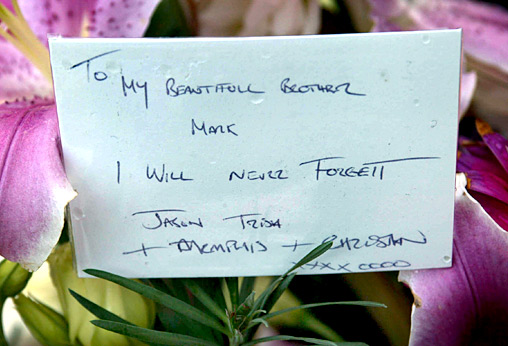 To
My Beautifull Brother
Mark
I Will Never Forgett
Jason Trish
+ Memphis + Christian
xxxx oooo